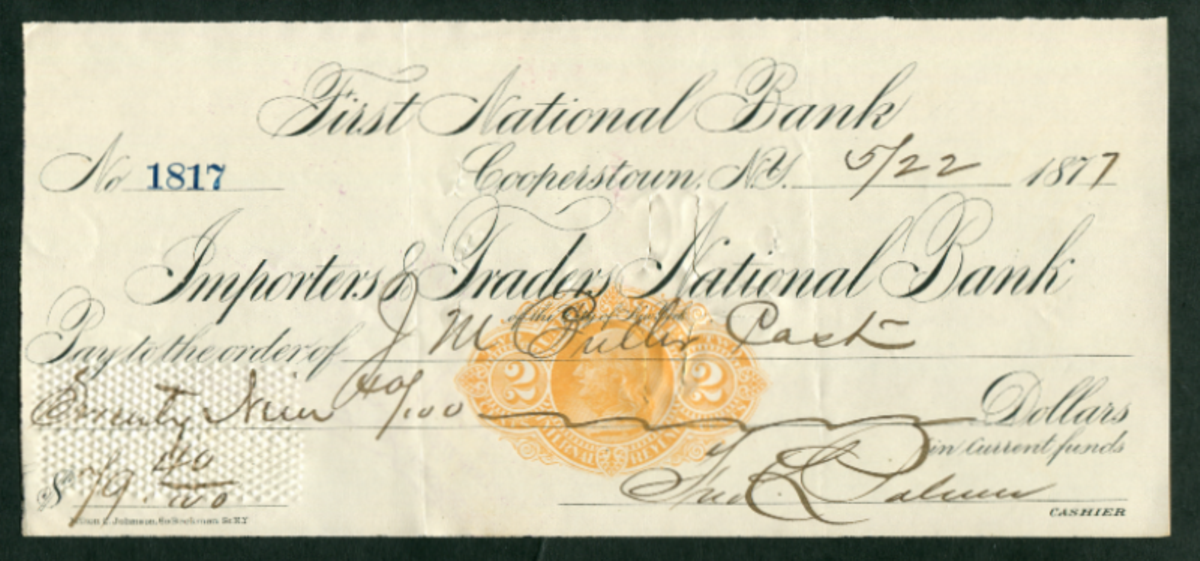 First National Bank
No 1817 Cooperstown, N.Y. 5/22 1877
Importers & Traders National Bank
of the City of New York
Pay to the order of J M Fuller Cash
Seventy Nine 40/100 Dollars
2 2
in current funds
$ 79. 40/100
Fred. L. Palmer
CASHIER